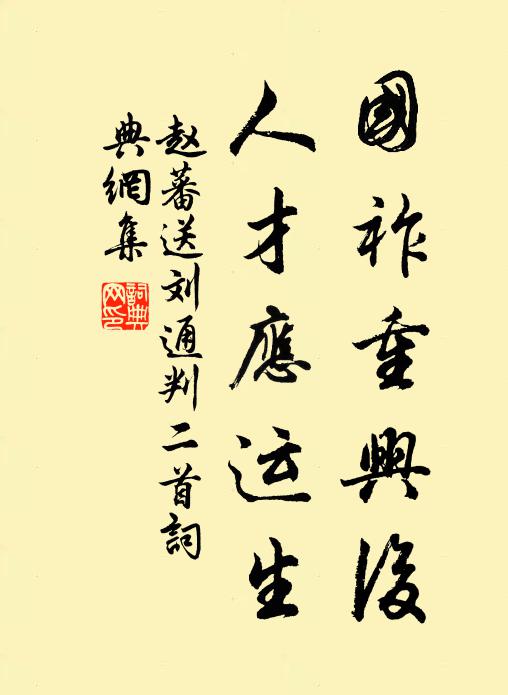 國祚重興後
人才應运生
赵蕃送刘通判二首詞
典網集
詞典
网印